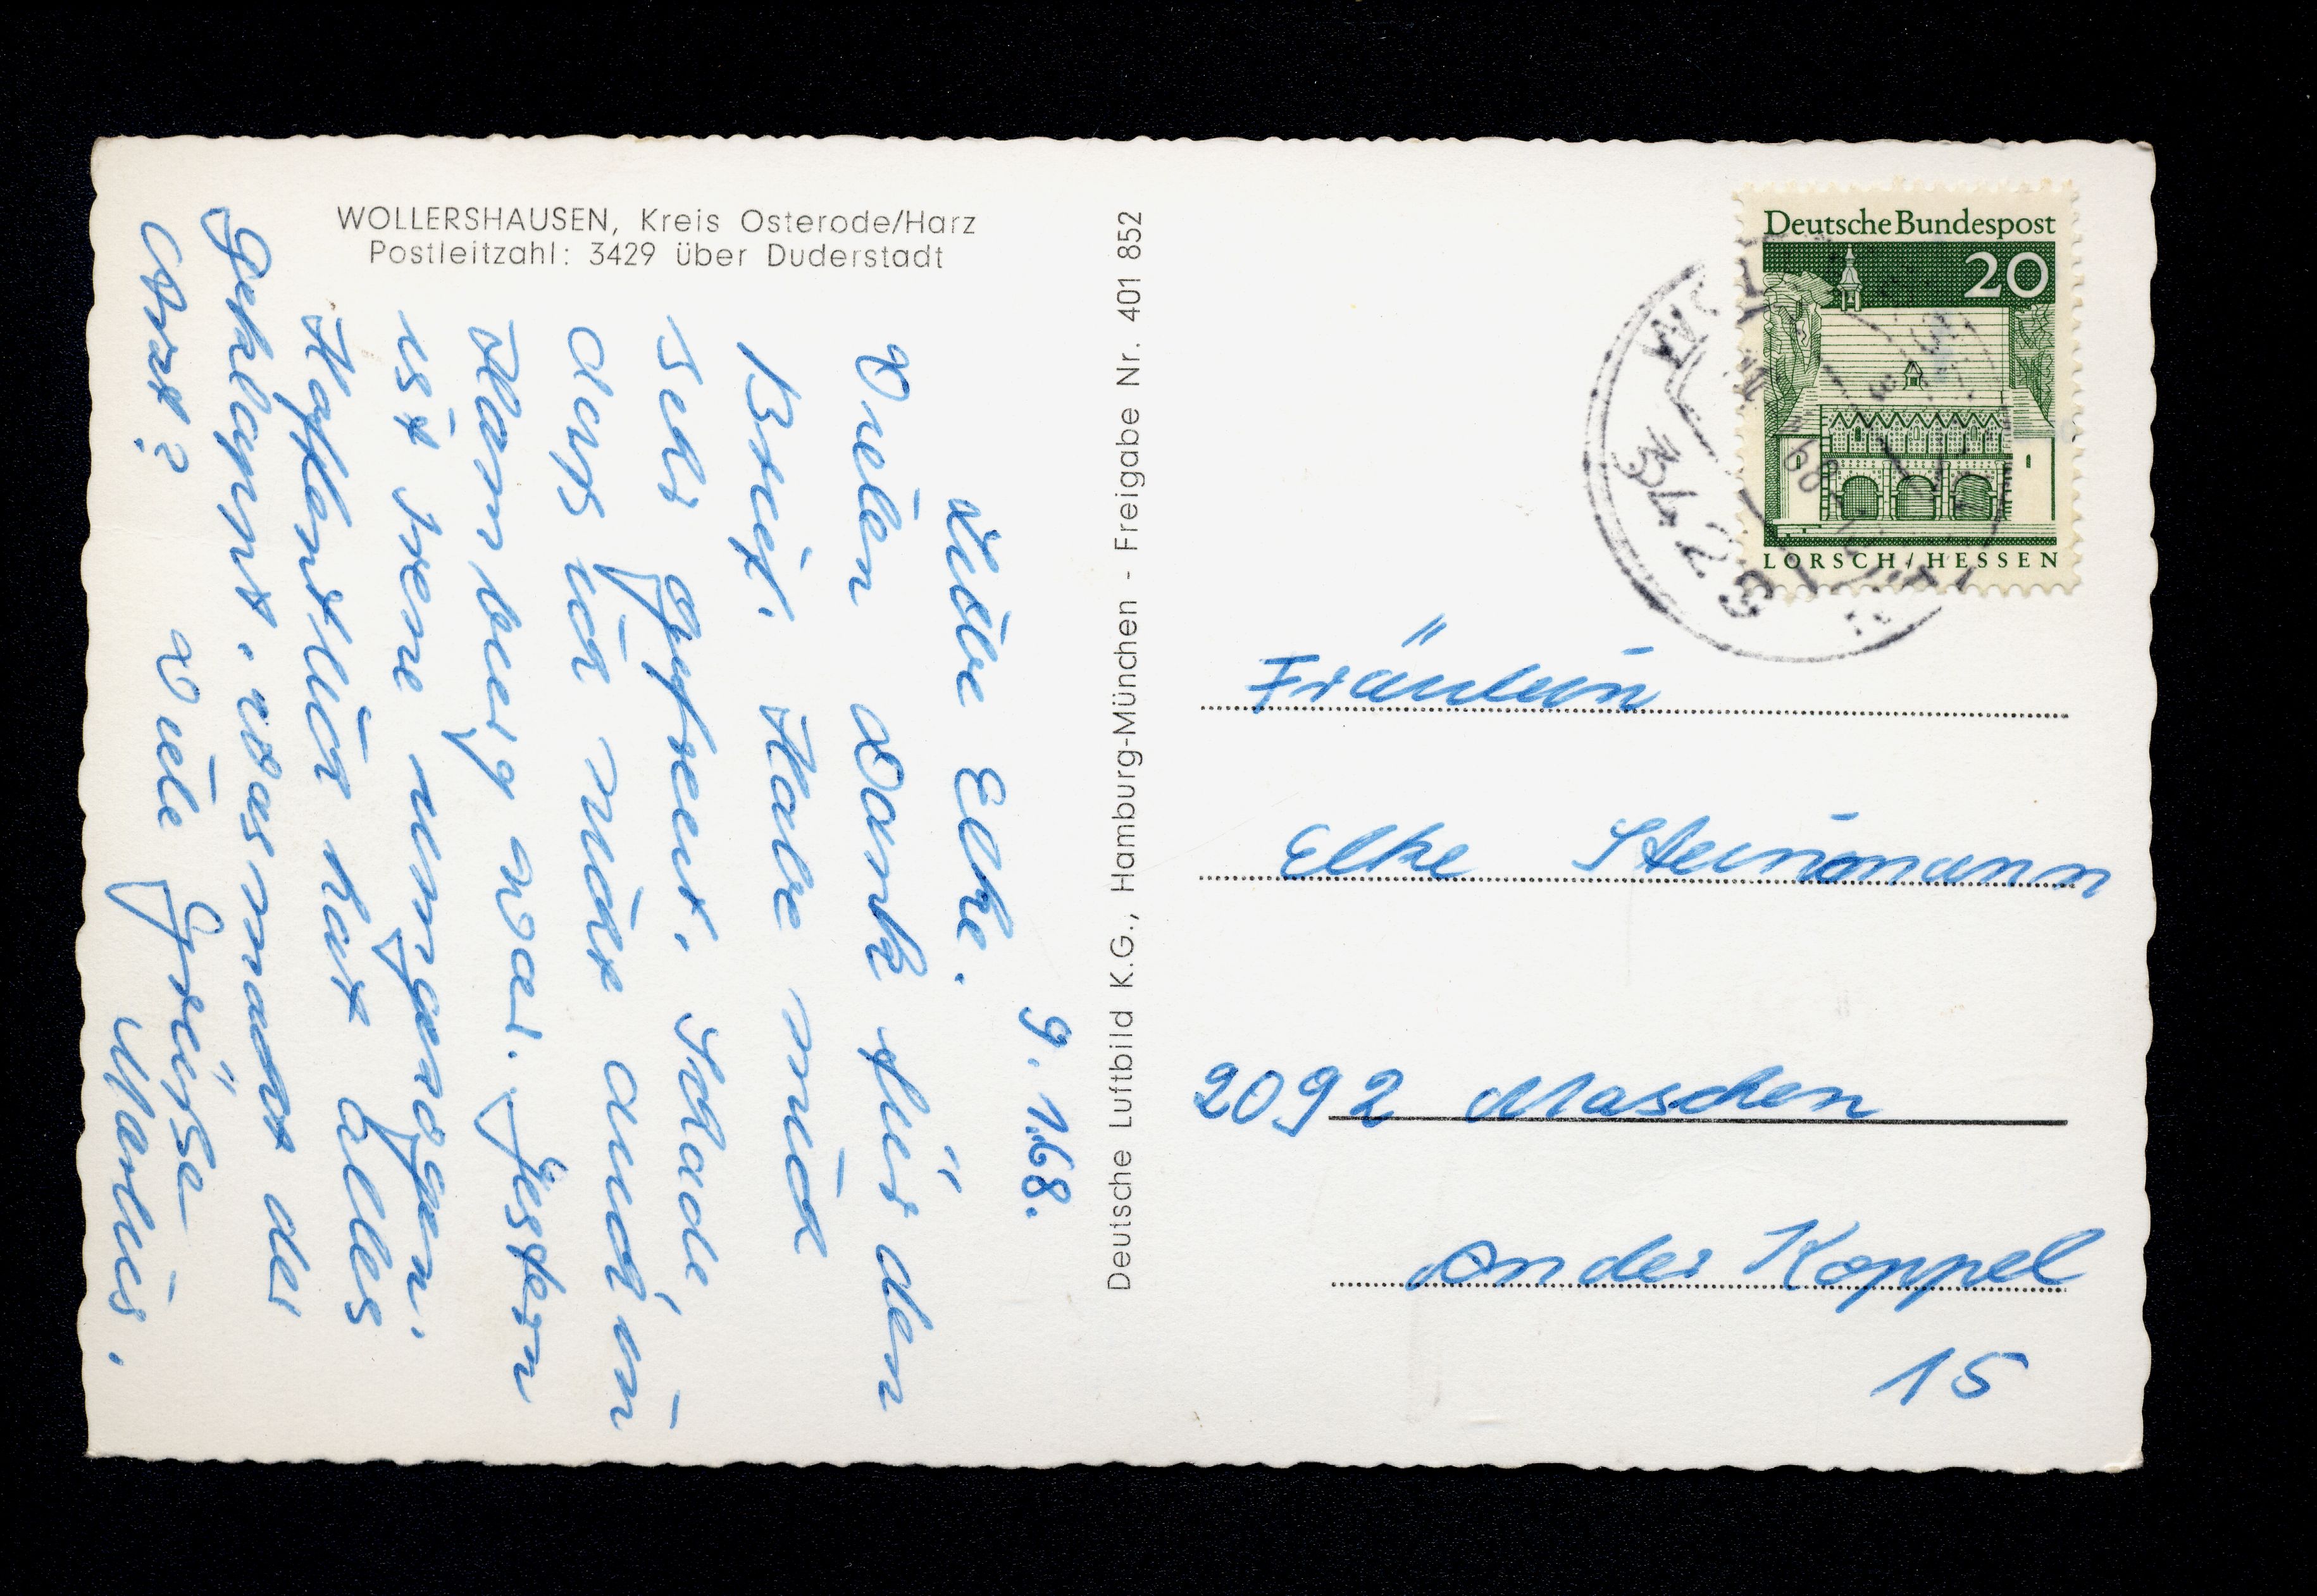 WOLLERSHAUSEN, Kreis Osterode/Harz
Postleitzahl: 3429 über Duderstadt
9.1.68.
Liebe Elke.
Vielen Dank für den
Brief. Habe mich
sehr gefreut. Schade
daß ich nicht auch in
Hamburg war. Gestern
ist Irene umgezogen.
Hoffentlich hat alles
geklappt. was macht der
Arzt? Viele Grüße
Marlies.
Deutsche Luftbild K.G., Hamburg-München - Freigabe Nr. 401 852
Deutsche Bundespost
20
LORSCH/HESSEN
Fräulein
Elke Steinmann
2092 Maschen
An der Koppel
15